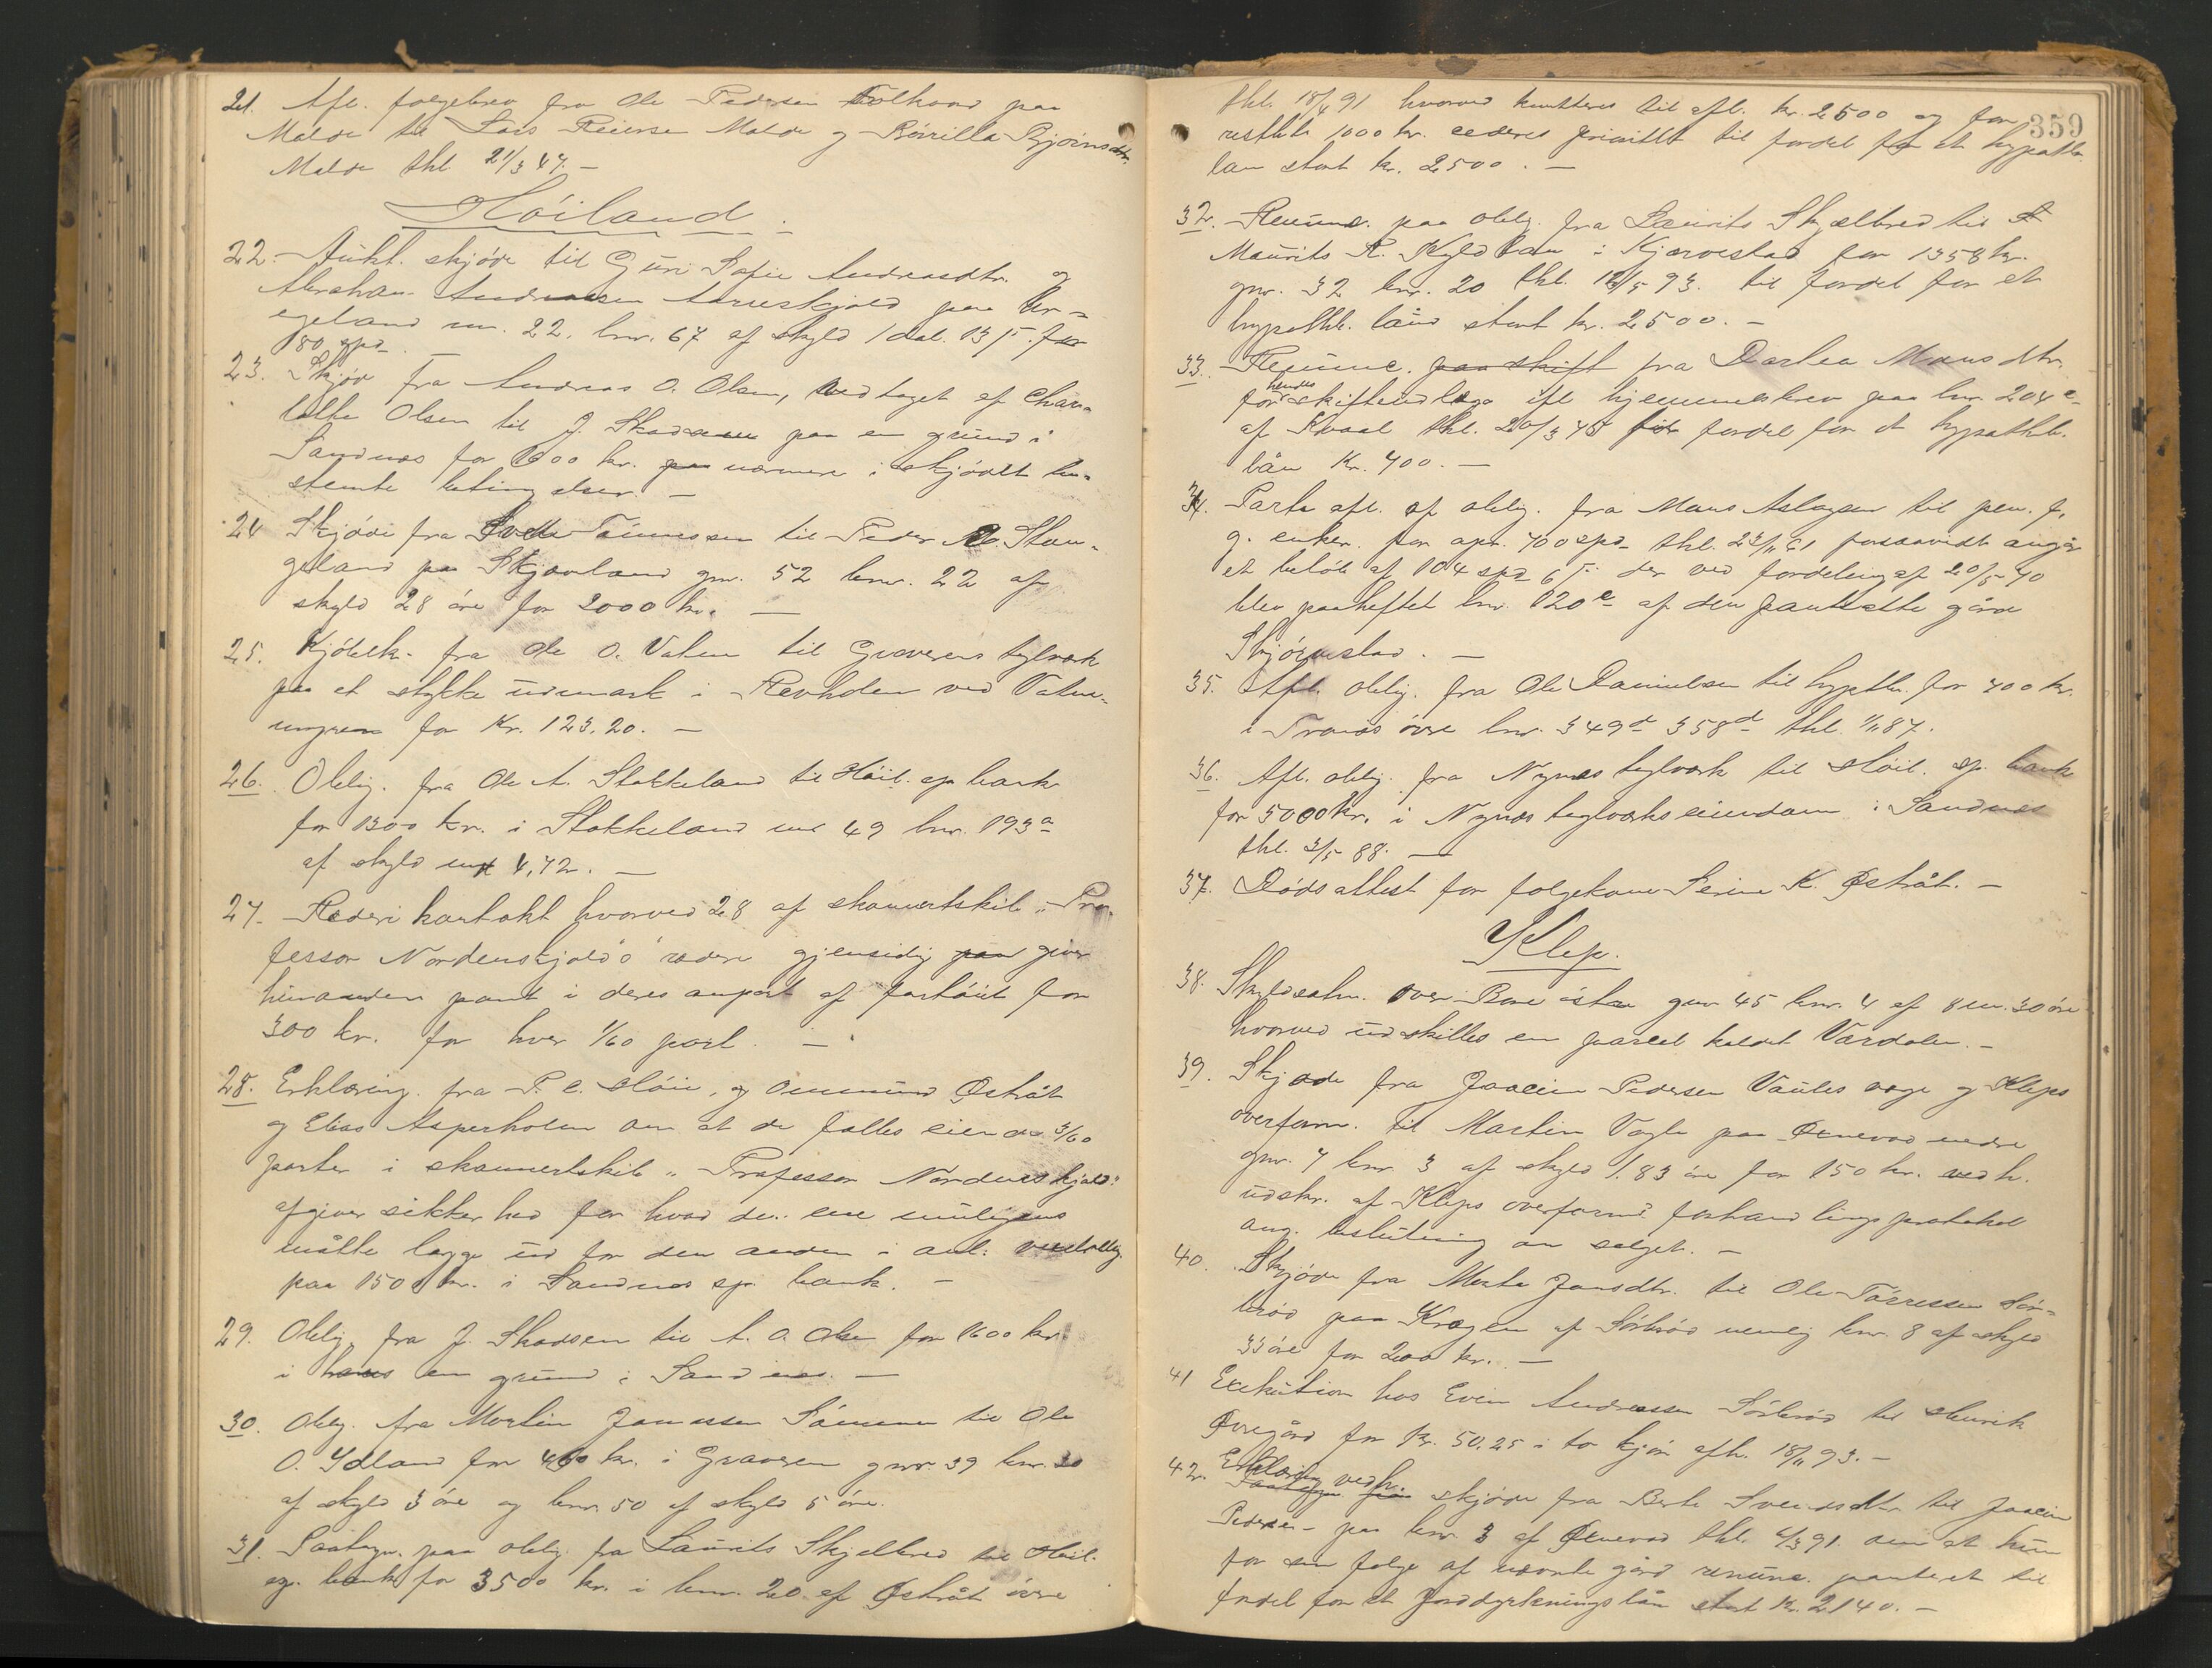 21. Afl. folgebrev fra Ole Pedersen Tolhaard paa
Malde til Lars Reiersen Malde og Börrilla Bjørnsdtr.
Malde thl 21/3 47. –
Höiland.
22. Aukt. skjöde til Guri Sofie Andreasdtr. og
Abraham Andreassen Arneskjold paa
egeland mn. 22. lnr. 67 af skyld 1 dal. 13 ſ. for
80 spd
23. Skjöde fra Andreas O. Olsen, vedtaget af Char-
lotte Olsen til J. Skadsem paa en grund i
Sandnes for 1600 kr. paa nærmere i skjödet be-
stemte betingelser. –
24 Skjöde fra Tönnessen til Peder Stan-
geland paa Skjæveland gnr. 52 bnr. 22 af
skyld 28 öre for 2000 kr. –
25. Kjöbek. fra Ole O. Vatne til Graverens teglværk
paa et stykke udmark i Revholen ved Vatne-
for Kr. 123.20. –
26. Oblig. fra Ole A. Stokkeland til Höil. sp bank
for 1300 kr. i Stokkeland mn 49 lnr. 193a
af skyld mrk 4,72. –
27. Rederikontrakt hvorved 28 af skonnertskib „Pro-
fessor Nordenskjold's" redere gjensidig giver
hinanden pant i deres anpart af fartöiet for
300 kr. for hver 1/60 part. –
28. Erklæring fra P. C. Höie, og Ommund Østråt
og Elias Asperholm om at de fælles eiende 3/60
parter i skonnertskib „Professor Nordenskjold"
afgiver sikkerhed for hvad den ene muligens
måtte lægge ud for den anden i anl.
paa 1500 kr. i Sandnes sp. bank. –
29. Oblig. fra J. Skadsem til A. O. Olsen for 1600 kr.
i hans en grund i Sandnes. –
30. Oblig. fra Martin Jonassen Sömme til Ole
O. Ydland for 460 kr. i Graveren gnr. 39 bnr. 30
af skyld 3 öre og bnr. 50 af skyld 5 öre.
31. Paategn. paa oblig. fra Laurits Skjelbred til Höil.
sp. bank for 3500 kr. i bnr. 20 af Østråt övre
359
thl. 18/4 91 hvorved kvitteres til afl. kr. 2500 og for
resttbl. 1000 kr. cederes prioritet til fordel for et hypothk.
laan stort kr. 2500. –
32. Renunc. paa oblig. fra Laurits Skjælbred til
Maurits R. Kyldsen i Kjærvestad for 1358 kr.
gnr. 32 bnr. 20 thl. 18/5 93. til fordel for et
hypothk. lån stort kr. 2500. –
33. Renunc. paa skift fra Dorthea Monsdtr.
for hendes skifteudlæg ifl hjemmelsbrev paa lnr. 204c
af Kvaal thl. 20/3 45 for fordel for et hypothk.
lån Kr. 400. –
34. Parta afl. af oblig. fra Mons Aslagsen til pen. f.
g. enker. for opr. 700 spd thl. 23/11 61 forsaavidt angår
et belöb af 104 spd 6 ſ. der ved fordeling af 20/5 70
blev paaheftet lnr. 120e af den pantsatte gård
Skjörestad. –
35. Afl. oblig. fra Ole Danielsen til hypthk. for 400 kr.
i Tronæs övre lnr. 349d 358d thl. 1/11 87.
36. Afl. oblig. fra Nynæs teglværk til Höil. sp. bank
for 5000 kr. i Nynæs teglværks eiendom i Sandnes
thl. 3/5 88. –
37. Dödsattest for folgekone Serine K. Østråt. –
Klep.
38. Skyldsahn. over Bore östre gnr 45 bnr. 4 af 8 m. 30 öre
hvorved udskilles en parcel kaldet Vardalen. –
39. Skjöde fra Joacim Pedersen Vaules værge og Kleps
overform. til Martin Vagle paa Ørnevad nedre
gnr. 7 bnr. 3 af skyld 1.83 öre for 150 kr. vedh.
udskr. af Kleps overformd. forhandlingsprotokol
ang. beslutning om salget. –
40. Skjöde fra Marta Jonsdtr. til Ole Törressen Sör-
bröd paa Kragen af Sörbröd nemlig bnr. 8 af skyld
33 öre for 200 kr. –
41 Exekution hos Even Andreassen Sörbröd til Henrik
Øvregård for Kr. 50.25 i to kjör afh. 18/11 93. –
42. Erklæring vedh. skjöde fra Berte Svendsdtr. til Joacim
Pedersen paa bnr. 3 af Ørnevad thl. 4/3 91. om at hun
for sin folge af nævnte gård renunc. panteret til
fordel for et Jorddyrkningslån stort Kr. 2140. –